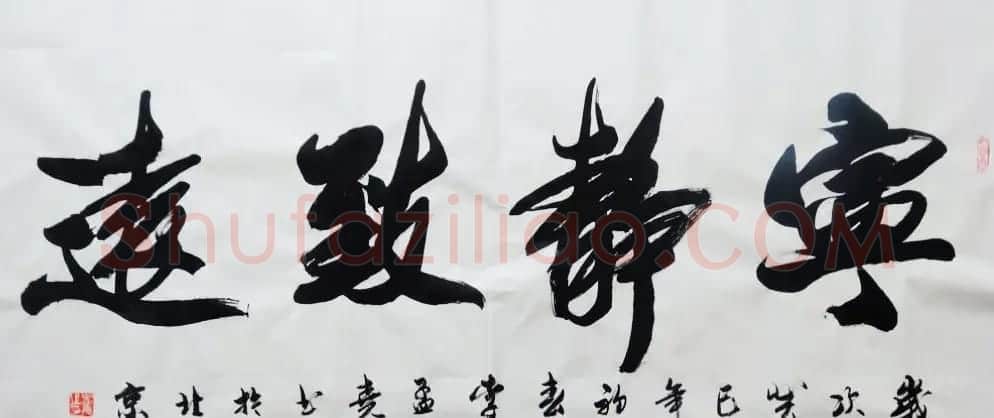 寧靜致遠
歲次癸巳年初春李孟堯书於北京
Shufaziliao.COM